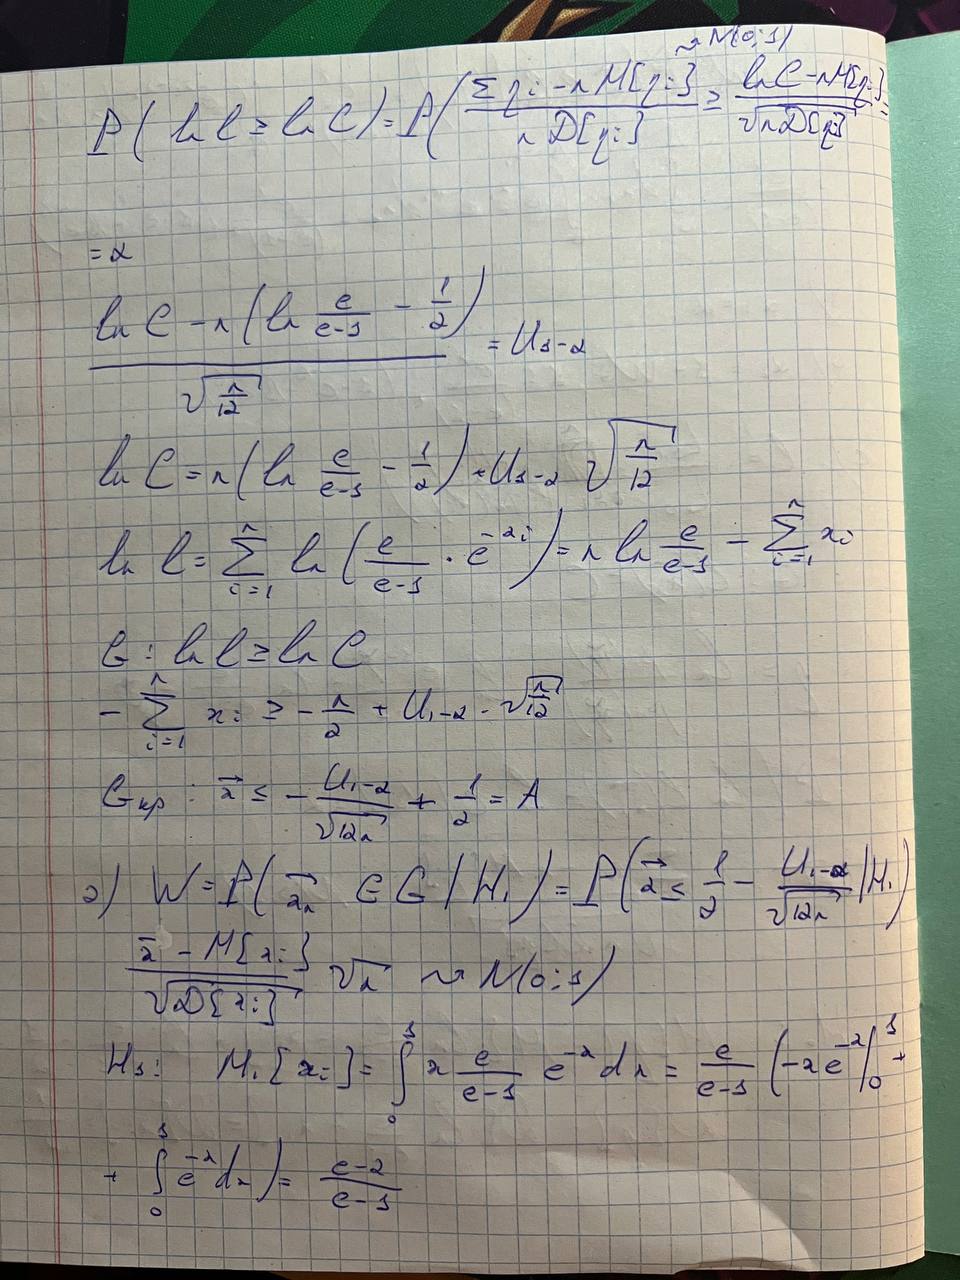 ~ N(0;1)
P( ln l ≥ ln C) = P( (Σηi - nM[ηi]) / (nD[ηi]) ≥ (ln C - nM[ηi]) / √(nD[ηi]) ) =
= α
(ln C - n(ln e/(e-1) - 1/2)) / √(n/12) = U1-α
ln C = n(ln e/(e-1) - 1/2) + U1-α √(n/12)
ln l = Σ(i=1..n) ln( e/(e-1) · e^(-xi) ) = n ln e/(e-1) - Σ(i=1..n) xi
G: ln l ≥ ln C
- Σ(i=1..n) xi ≥ - n/2 + U1-α · √(n/12)
Gкр: x̄ ≤ - U1-α/√(12n) + 1/2 = A
2) W = P( x⃗n ∈ G / H1 ) = P( x̄ ≤ 1/2 - U1-α/√(12n) / H1 )
(x̄ - M[xi]) / √(D[xi]) √n ~ N(0;1)
H1: M1[xi] = ∫₀¹ x e/(e-1) e^(-x) dx = e/(e-1) ( -x e^(-x) |₀¹ +
+ ∫₀¹ e^(-x) dx ) = (e-2)/(e-1)